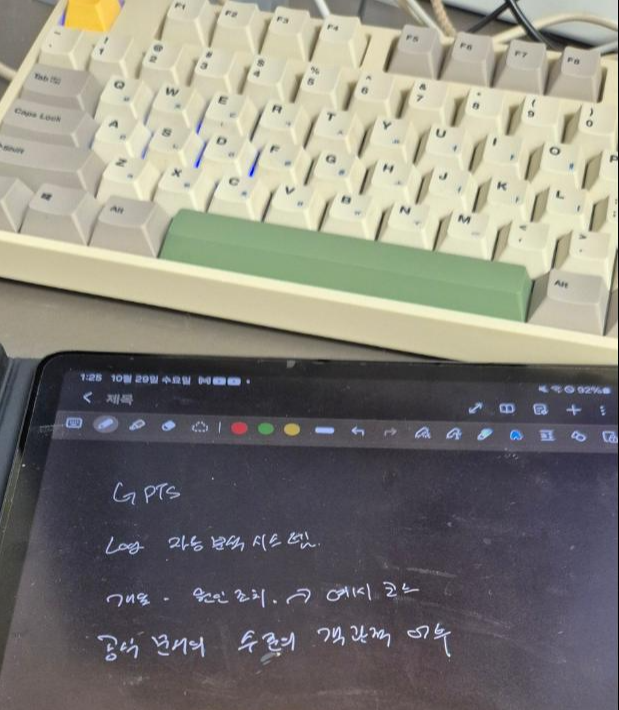 F1 F2 F3 F4 F5 F6 F7 F8
~ ! 1 @ 2 # 3 $ 4 % 5 ^ 6 & 7 * 8 ( 9 ) 0
Tab Q W E R T Y U I O P
Caps Lock A S D F G H J K L
Shift Z X C V B N M < >
Alt Alt
1:25 10월 29일 수요일 92%
제목
GPTS
Log 자동 분석 시스템.
개요 - 원인 조치. → 예시 코드
공식 문서의 수준의 객관적 여부